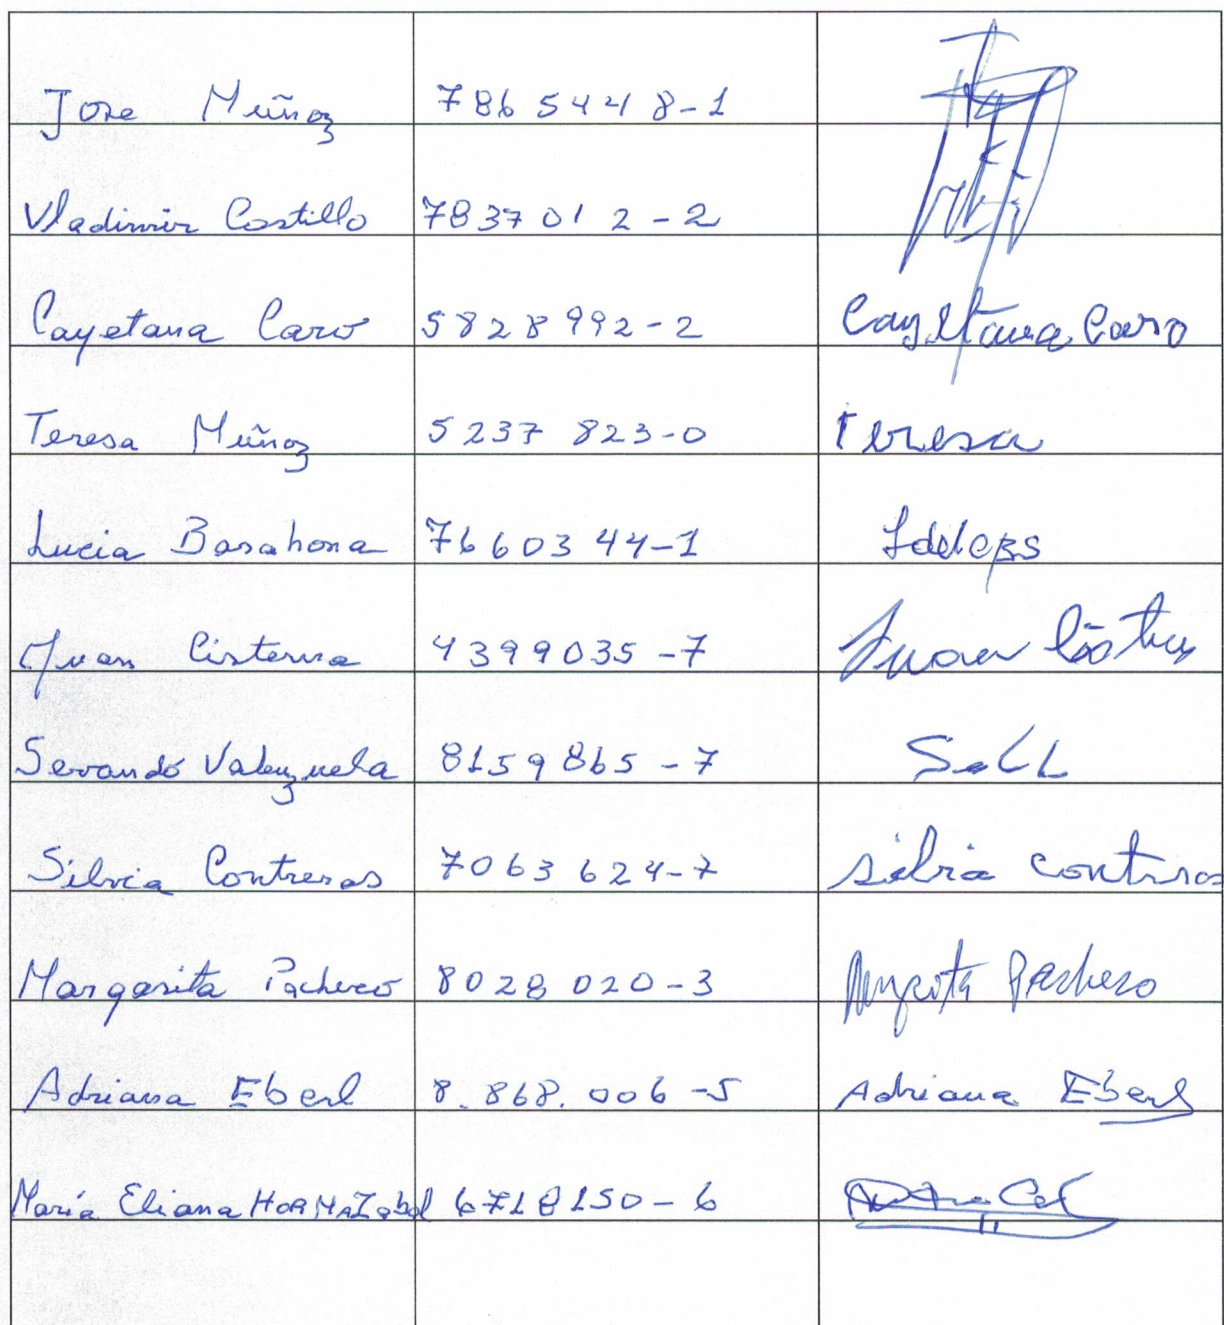 Jose Muñoz 7865448-1
Vladimir Castillo 7837012-2
Cayetana Caro 5828992-2 Cayetana Caro
Teresa Muñoz 5237823-0 Teresa
Lucia Barahona 7660344-1
Juan Cisterna 4399035-7 Juan
Servando Valenzuela 8159865-7
Silvia Contreras 7063624-7 silvia contreras
Margarita Pacheco 8028020-3 Pacheco
Adriana Eberl 8.868.006-5 Adriana Eberl
María Eliana HORMAZabal 6718150-6